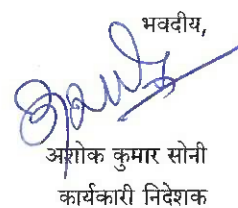 भवदीय,
अशोक कुमार सोनी
कार्यकारी निदेशक